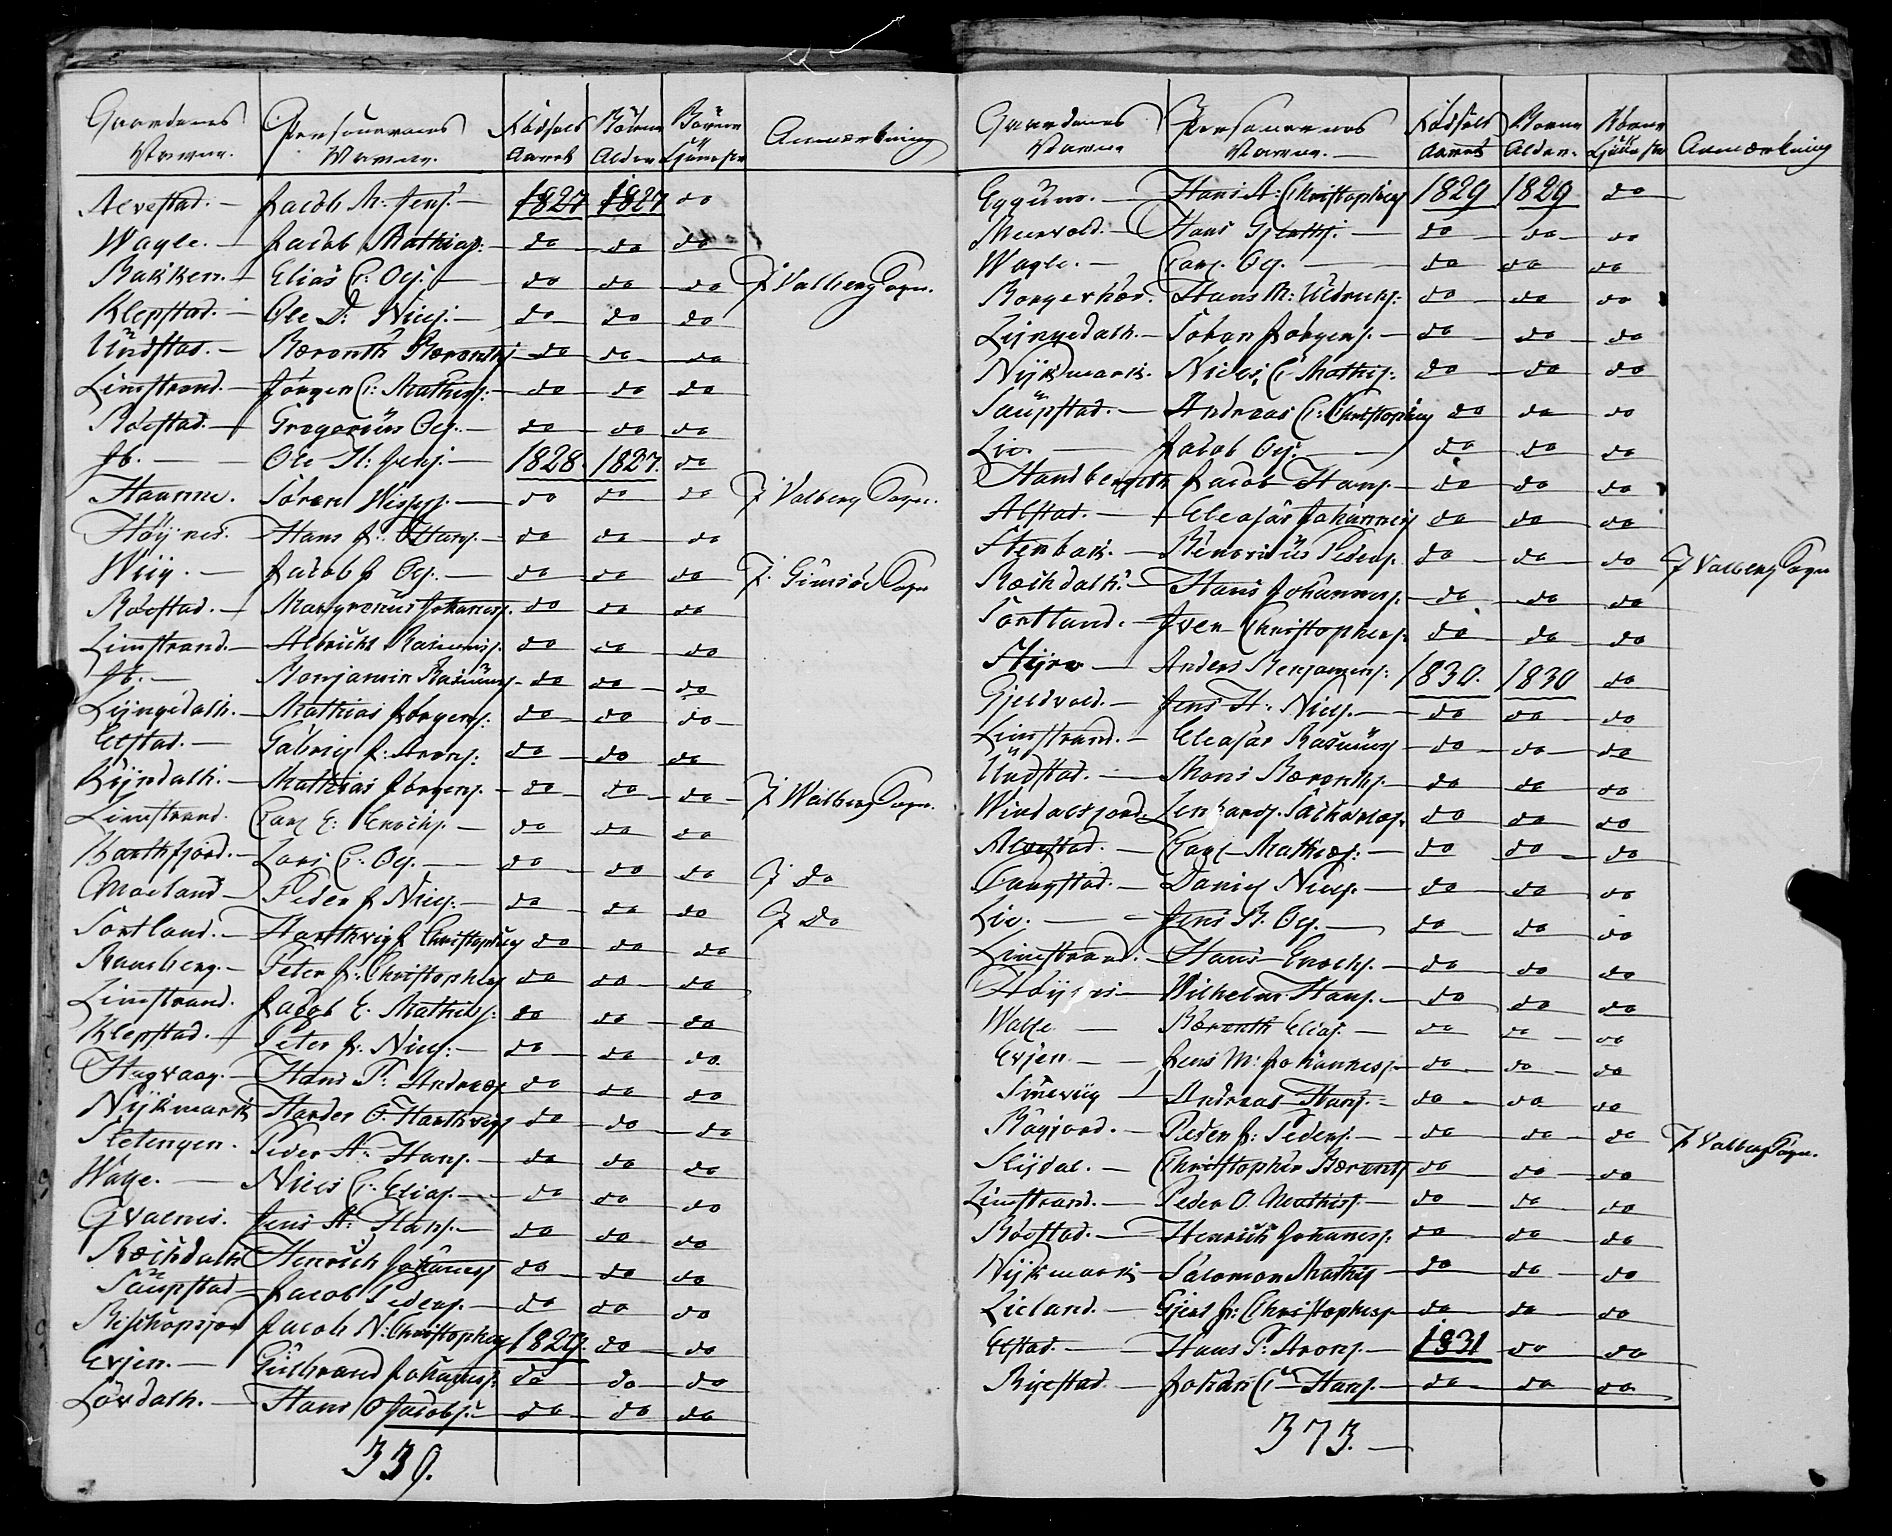 Gaardenes Navne. Personernes Navne. Fødsels Aaret Børne Alder Børne Tjeneste Anmærkning
Alvestad. Jacob M: Jens: 1827 1827 do
Wagle. Jacob Mathias: do do do
Bakken. Elias C: Ols: do do do I Valberg Sogn.
Klepstad. Ole D: Niels: do do do
Undstad. Bærenth Bærenths do do do
Limstrand. Jørgen C: Mathiss: do do do
Bølstad. Gregorius Ols. do do do
Ib. Ole H: Jens: 1828. 1827. do
Haunne. Søren Niss: do do do I Valberg Sogn.
Høynes. Hans J: Hans. do do do
Wiig. Jacob J Ols. do do do I Gimsøe Sogn
Bølstad. Margrenus Johanes. do do do
Limstrand. Albricht Rasmuss: do do do
Ib. Benjamin Rasmuss do do do
Lyngedalh. Mathias Jørgens: do do do
Elstad. Gabriel J: Arons: do do do
Kyndalh. Mathias Jørgens. do do do I Walberg Sogn.
Limstrand. Carl E: Enochs. do do do
Barthfjord. Lars C: Ols. do do do I do
Moeland Peder J Niels. do do do I do
Sortland. Harthvig J Christophers do do do
Ramberg. Peter J: Christophers do do do
Limstrand. Jacob E. Mathiss: do do do
Klepstad. Peter J. Niels: do do do
Hagvaag. Hans P: Andreas do do do
Nykmark Harder O. Harthvigs do do do
Sletengen. Peder A: Hans. do do do
Walle. Niels C: Elias. do do do
Qvalnes. Jens A: Hans. do do do
Bæchdalh Henrich Johanes do do do
Saupstad Jacob Peders. do do do
Bischopsjord Jacob N: Christophers 1829. do do
Evjen. Gulbrand Johanes: do do do
Løvdalh. Hans O Jacobs: do do do
339.
Gaardenes Navne Personernes Navne. Fødsels Aaret Børne Alder. Børne Tjeneste Anmærkning
Eggum. Hans A: Christophers 1829 1829 do
Meervold. Hans Gjerths. do do do
Wagle. Carl Ols. do do do
Borgerhøe. Hans M: Uldrichs: do do do
Lyngedalh. Johan Jørgens. do do do
Nykmark. Niels C Mathis: do do do
Saupstad. Andreas C: Christophers do do do
Lie. Jacob Ols: do do do
Handbergeth Jacob Hans. do do do
Alstad. Eleasar Johannes do do do
Stenbak. Benonius Peders. do do do I Valberg Sogn
Bæchdalh. Hans Johannes: do do do
Sortland. Iver Christophers: do do do
Styrve Anders Benjamens: 1830. 1830 do
Gjeldvold. Jens H. Niels. do do do
Limstrand. Eleasar Rasmus do do do
Undstad. Mons Bærenths. do do do
Windalsjord. Lenhards. Sachariæs. do do do
Alvestad. Carl Mathias: do do do
Tangstad. Daniel Niels. do do do
Lie. Jens B. Ols. do do do
Limstrand. Hans Enochs. do do do
Høynes Wilhelm Hans. do do do
Walle Bærenth Elias. do do do
Evjen. Jens M: Johannes. do do do
Smevig Andreas Hans. do do do
Bøgjord. Peder J: Peders. do do do I Valberg Sogn.
Slydal. Christopher Bærents do do do
Limstrand. Peder O. Mathiss. do do do
Bølstad. Henrich Johanes: do do do
Nykmark Salomon Mathis do do do
Lieland. Gjert J: Christophers. do do do
Elstad. Hans P: Arons. 1831 do do
Bilestad. Johan C Hans. do do do
373.